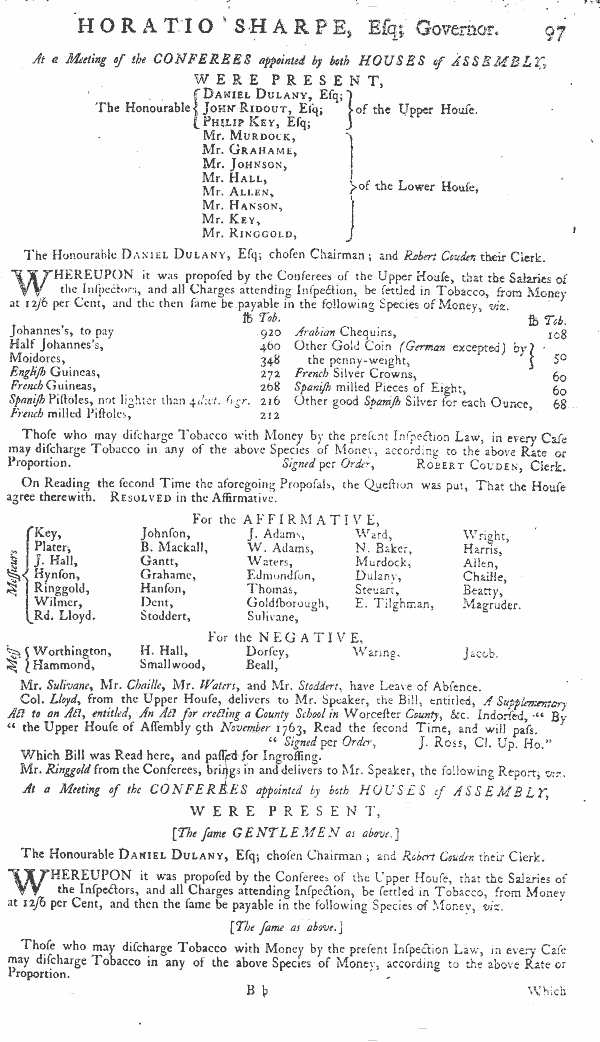 HORATIO SHARPE, Eſq; Governor. 97
At a Meeting of the CONFEREES appointed by both HOUSES of ASSEMBLY,
WERE PRESENT,
The Honourable { DANIEL DULANY, Eſq;
JOHN RIDOUT, Eſq;
PHILIP KEY, Eſq; } of the Upper Houſe.
Mr. MURDOCK,
Mr. GRAHAME,
Mr. JOHNSON,
Mr. HALL,
Mr. ALLEN,
Mr. HANSON,
Mr. KEY,
Mr. RINGGOLD, } of the Lower Houſe,
The Honourable DANIEL DULANY, Eſq; choſen Chairman; and Robert Couden their Clerk.
WHEREUPON it was propoſed by the Conferees of the Upper Houſe, that the Salaries of
the Inſpectors, and all Charges attending Inſpection, be ſettled in Tobacco, from Money
at 12/6 per Cent, and the then ſame be payable in the following Species of Money, viz.
℔ Tob.
Johannes's, to pay 920
Half Johannes's, 460
Moidores, 348
Engliſh Guineas, 272
French Guineas, 268
Spaniſh Piſtoles, not lighter than 4dwt. 6gr. 216
French milled Piſtoles, 212
℔ Tob.
Arabian Chequins, 108
Other Gold Coin (German excepted) by
the penny-weight, } 50
French Silver Crowns, 60
Spaniſh milled Pieces of Eight, 60
Other good Spaniſh Silver for each Ounce, 68
Thoſe who may diſcharge Tobacco with Money by the preſent Inſpection Law, in every Caſe
may diſcharge Tobacco in any of the above Species of Money, according to the above Rate or
Proportion. Signed per Order, ROBERT COUDEN, Clerk.
On Reading the ſecond Time the aforegoing Propoſals, the Queſtion was put, That the Houſe
agree therewith. RESOLVED in the Affirmative.
For the AFFIRMATIVE,
Meſſieurs { Key, Johnſon, J. Adams, Ward, Wright,
Plater, B. Mackall, W. Adams, N. Baker, Harris,
J. Hall, Gantt, Waters, Murdock, Allen,
Hynſon, Grahame, Edmondſon, Dulany, Chaille,
Ringgold, Hanſon, Thomas, Steuart, Beatty,
Wilmer, Dent, Goldſborough, E. Tilghman, Magruder.
Rd. Lloyd. Stoddert, Sulivane,
For the NEGATIVE,
Meſſ { Worthington, H. Hall, Dorſey, Waring, Jacob.
Hammond, Smallwood, Beall,
Mr. Sulivane, Mr. Chaille, Mr. Waters, and Mr. Stoddert, have Leave of Abſence.
Col. Lloyd, from the Upper Houſe, delivers to Mr. Speaker, the Bill, entitled, A Supplementary
Act to an Act, entitled, An Act for erecting a County School in Worceſter County, &c. Indorſed, “ By
“ the Upper Houſe of Aſſembly 9th November 1763, Read the ſecond Time, and will paſs.
“ Signed per Order, J. Ross, Cl. Up. Ho.”
Which Bill was Read here, and paſſed for Ingroſſing.
Mr. Ringgold from the Conferees, brings in and delivers to Mr. Speaker, the following Report, viz.
At a Meeting of the CONFEREES appointed by both HOUSES of ASSEMBLY,
WERE PRESENT,
[The ſame GENTLEMEN as above.]
The Honourable DANIEL DULANY, Eſq; choſen Chairman; and Robert Couden their Clerk.
WHEREUPON it was propoſed by the Conferees of the Upper Houſe, that the Salaries of
the Inſpectors, and all Charges attending Inſpection, be ſettled in Tobacco, from Money
at 12/6 per Cent, and then the ſame be payable in the following Species of Money, viz.
[The ſame as above.]
Thoſe who may diſcharge Tobacco with Money by the preſent Inſpection Law, in every Caſe
may diſcharge Tobacco in any of the above Species of Money, according to the above Rate or
Proportion.
B b Which